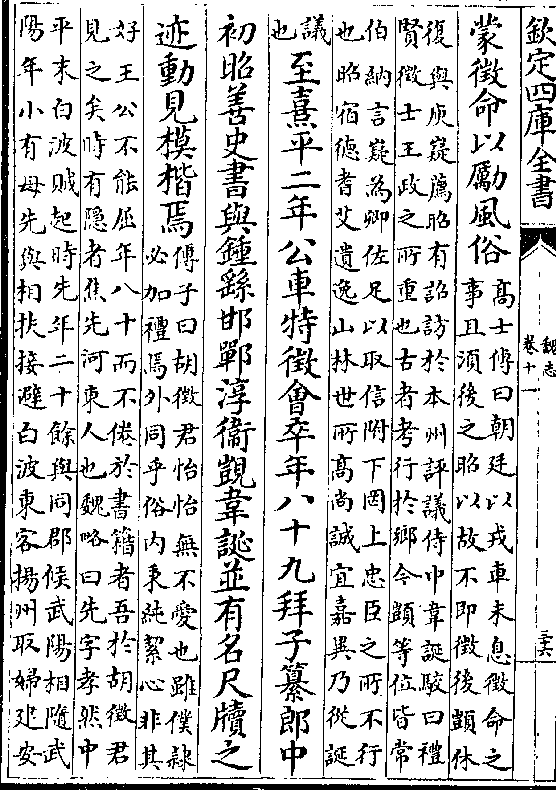 欽定四庫全書
魏志
卷十一
三六
蒙徵命以勵風俗
高士傳曰朝廷以戎車未息徵命之
事且須後之昭以故不即徵後顗休
復與庾嶷薦昭有詔訪於本州評議侍中韋誕駮曰禮
賢徵士王政之所重也古者考行於鄉今顗等位皆常
伯納言嶷為卿佐足以取信附下罔上忠臣之所不行
也昭宿德耆艾遺逸山林世所高尚誠宜嘉異乃從誕
議
也
至熹平二年公車特徵會卒年八十九拜子纂郎中
初昭善史書與鍾繇邯鄲淳衞覬韋誕並有名尺牘之
迹動見模楷焉
傅子曰胡徵君怡怡無不愛也雖僕隸
必加禮焉外同乎俗內秉純絜心非其
好王公不能屈年八十而不倦於書籍者吾於胡徵君
見之矣時有隱者焦先河東人也魏略曰先字孝然中
平末白波賊起時先年二十餘與同郡侯武陽相隨武
陽年小有母先與相扶接避白波東客揚州取婦建安